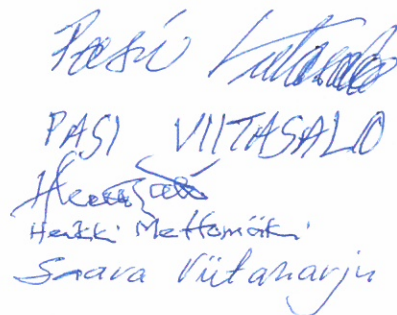 Pasi Viitasalo
PASI VIITASALO
Heikki Mettomäki
Saara Viitaharju